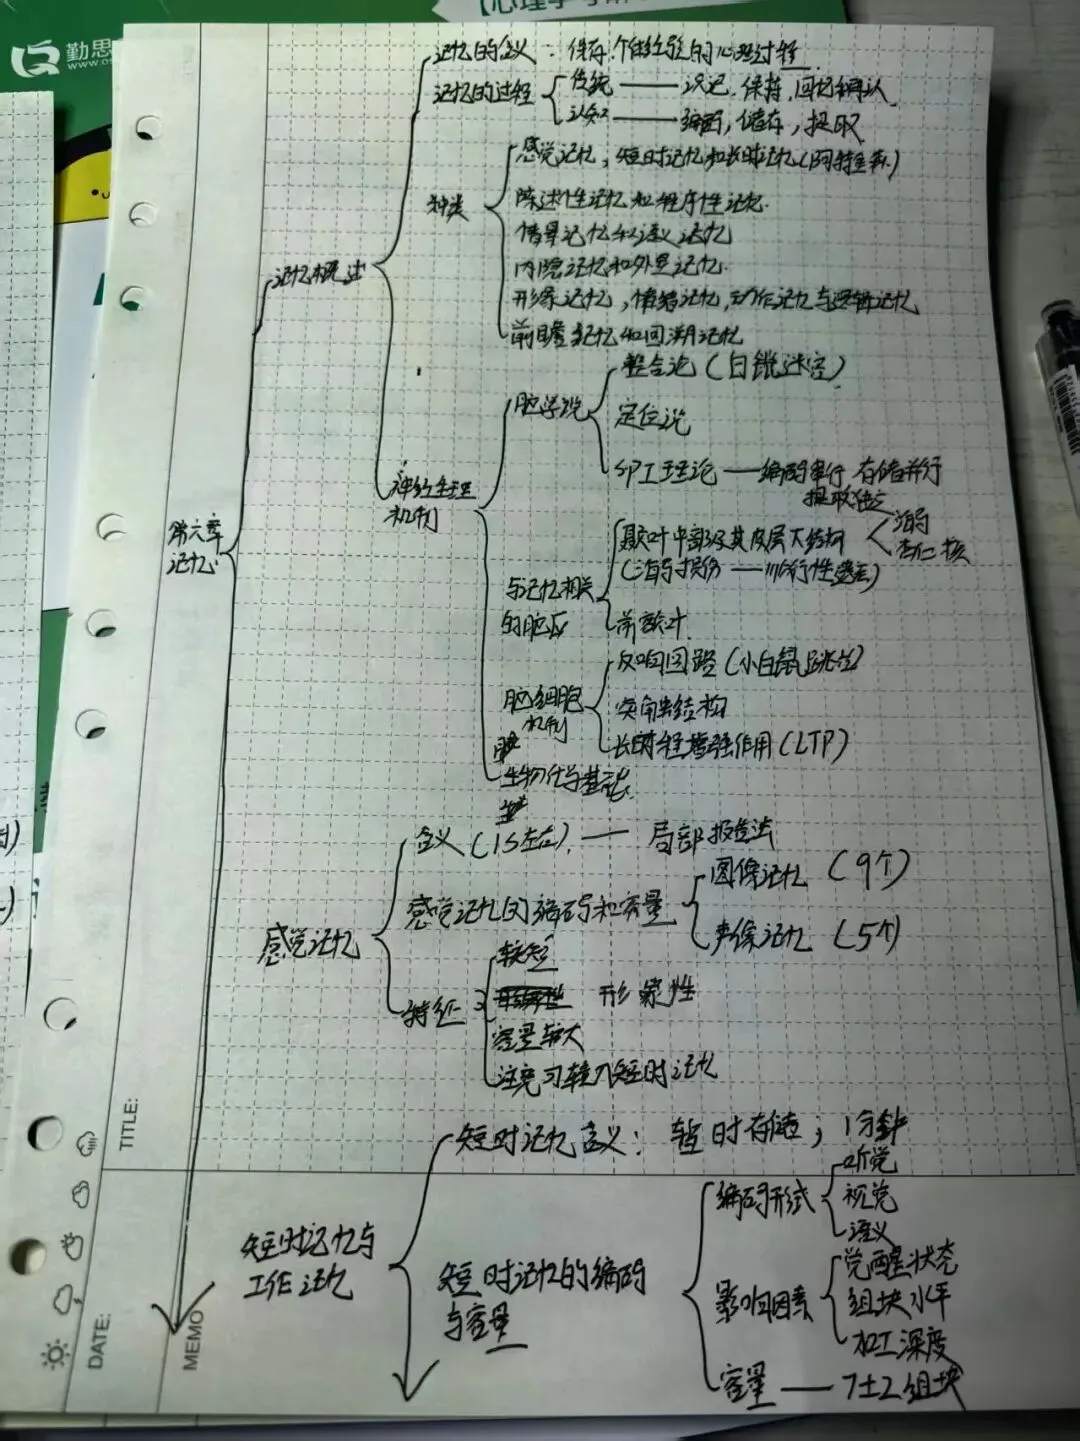 勤思
记忆的含义：保存个体经验的心理过程
记忆的过程
传统——识记、保持、回忆和再认
认知——编码，储存，提取
种类
感觉记忆，短时记忆和长时记忆(阿特金森)
陈述性记忆和程序性记忆
情景记忆和语义记忆
内隐记忆和外显记忆
形象记忆，情绪记忆，动作记忆与逻辑记忆
前瞻记忆和回溯记忆
记忆概述
第六章
记忆
神经生理
机制
脑学说
整合论(白鼠迷宫)
定位说
SPI理论——编码串行 存储并行
提取独立
与记忆相关
的脑区
颞叶中部及其皮层下结构
海马
杏仁核
(海马损伤——顺行性遗忘)
前额叶
脑细胞
机制
反响回路(小白鼠跳台)
突触结构
长时程增强作用(LTP)
生物化学基础
感觉记忆
含义(1S左右)——局部报告法
感觉记忆的编码和容量
图像记忆(9个)
声像记忆(5个)
特征
较短
形象性
容量较大
注意可转入短时记忆
短时记忆与
工作记忆
短时记忆含义：暂时存储；1分钟
短时记忆的编码
与容量
编码形式
听觉
视觉
语义
影响因素
觉醒状态
组块水平
加工深度
容量——7±2组块
TITLE:
DATE:
MEMO